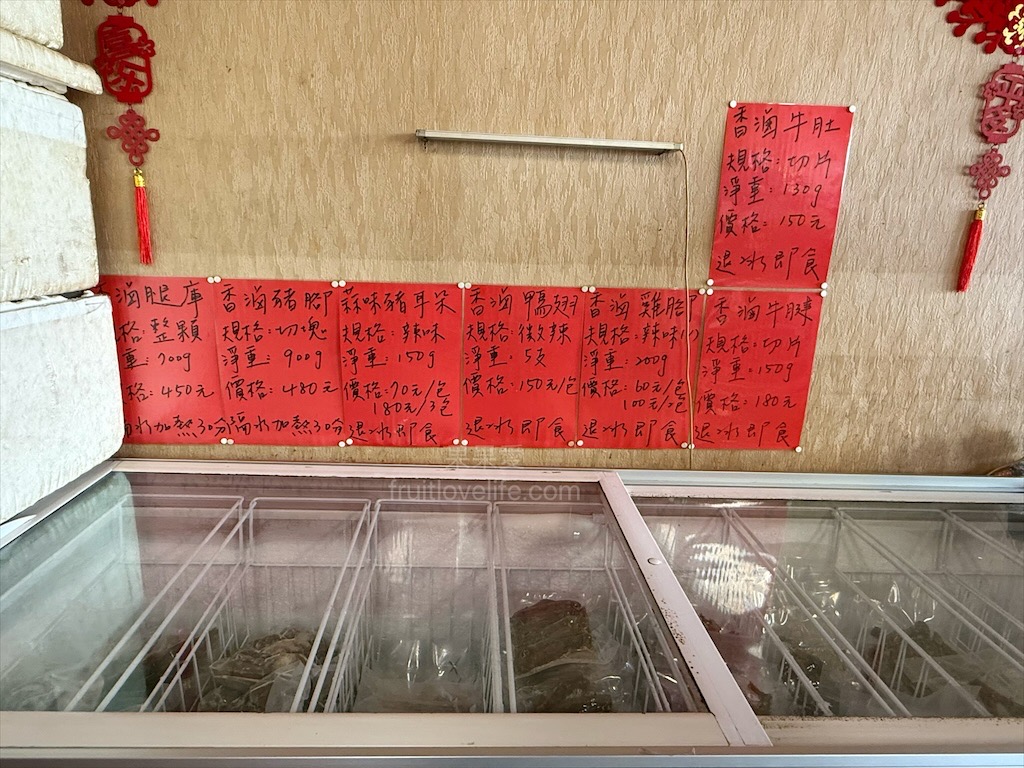 香滷牛肚
規格:切片
淨重:130g
價格:150元
退冰即食
滷腿庫
格:整顆
重:700g
格:450元
水加熱30分
香滷豬腳
規格:切塊
淨重:900g
價格:480元
隔水加熱30分
蒜味豬耳朵
規格:辣味
淨重:150g
價格:70元/包
180元/3包
退冰即食
香滷鴨翅
規格:微辣
淨重:5支
價格:150元/包
退冰即食
香滷雞胗
規格:辣味
淨重:200g
價格:60元/包
100元/2包
退冰即食
香滷牛腱
規格:切片
淨重:150g
價格:180元
退冰即食
果果愛
fruitlovelife.com